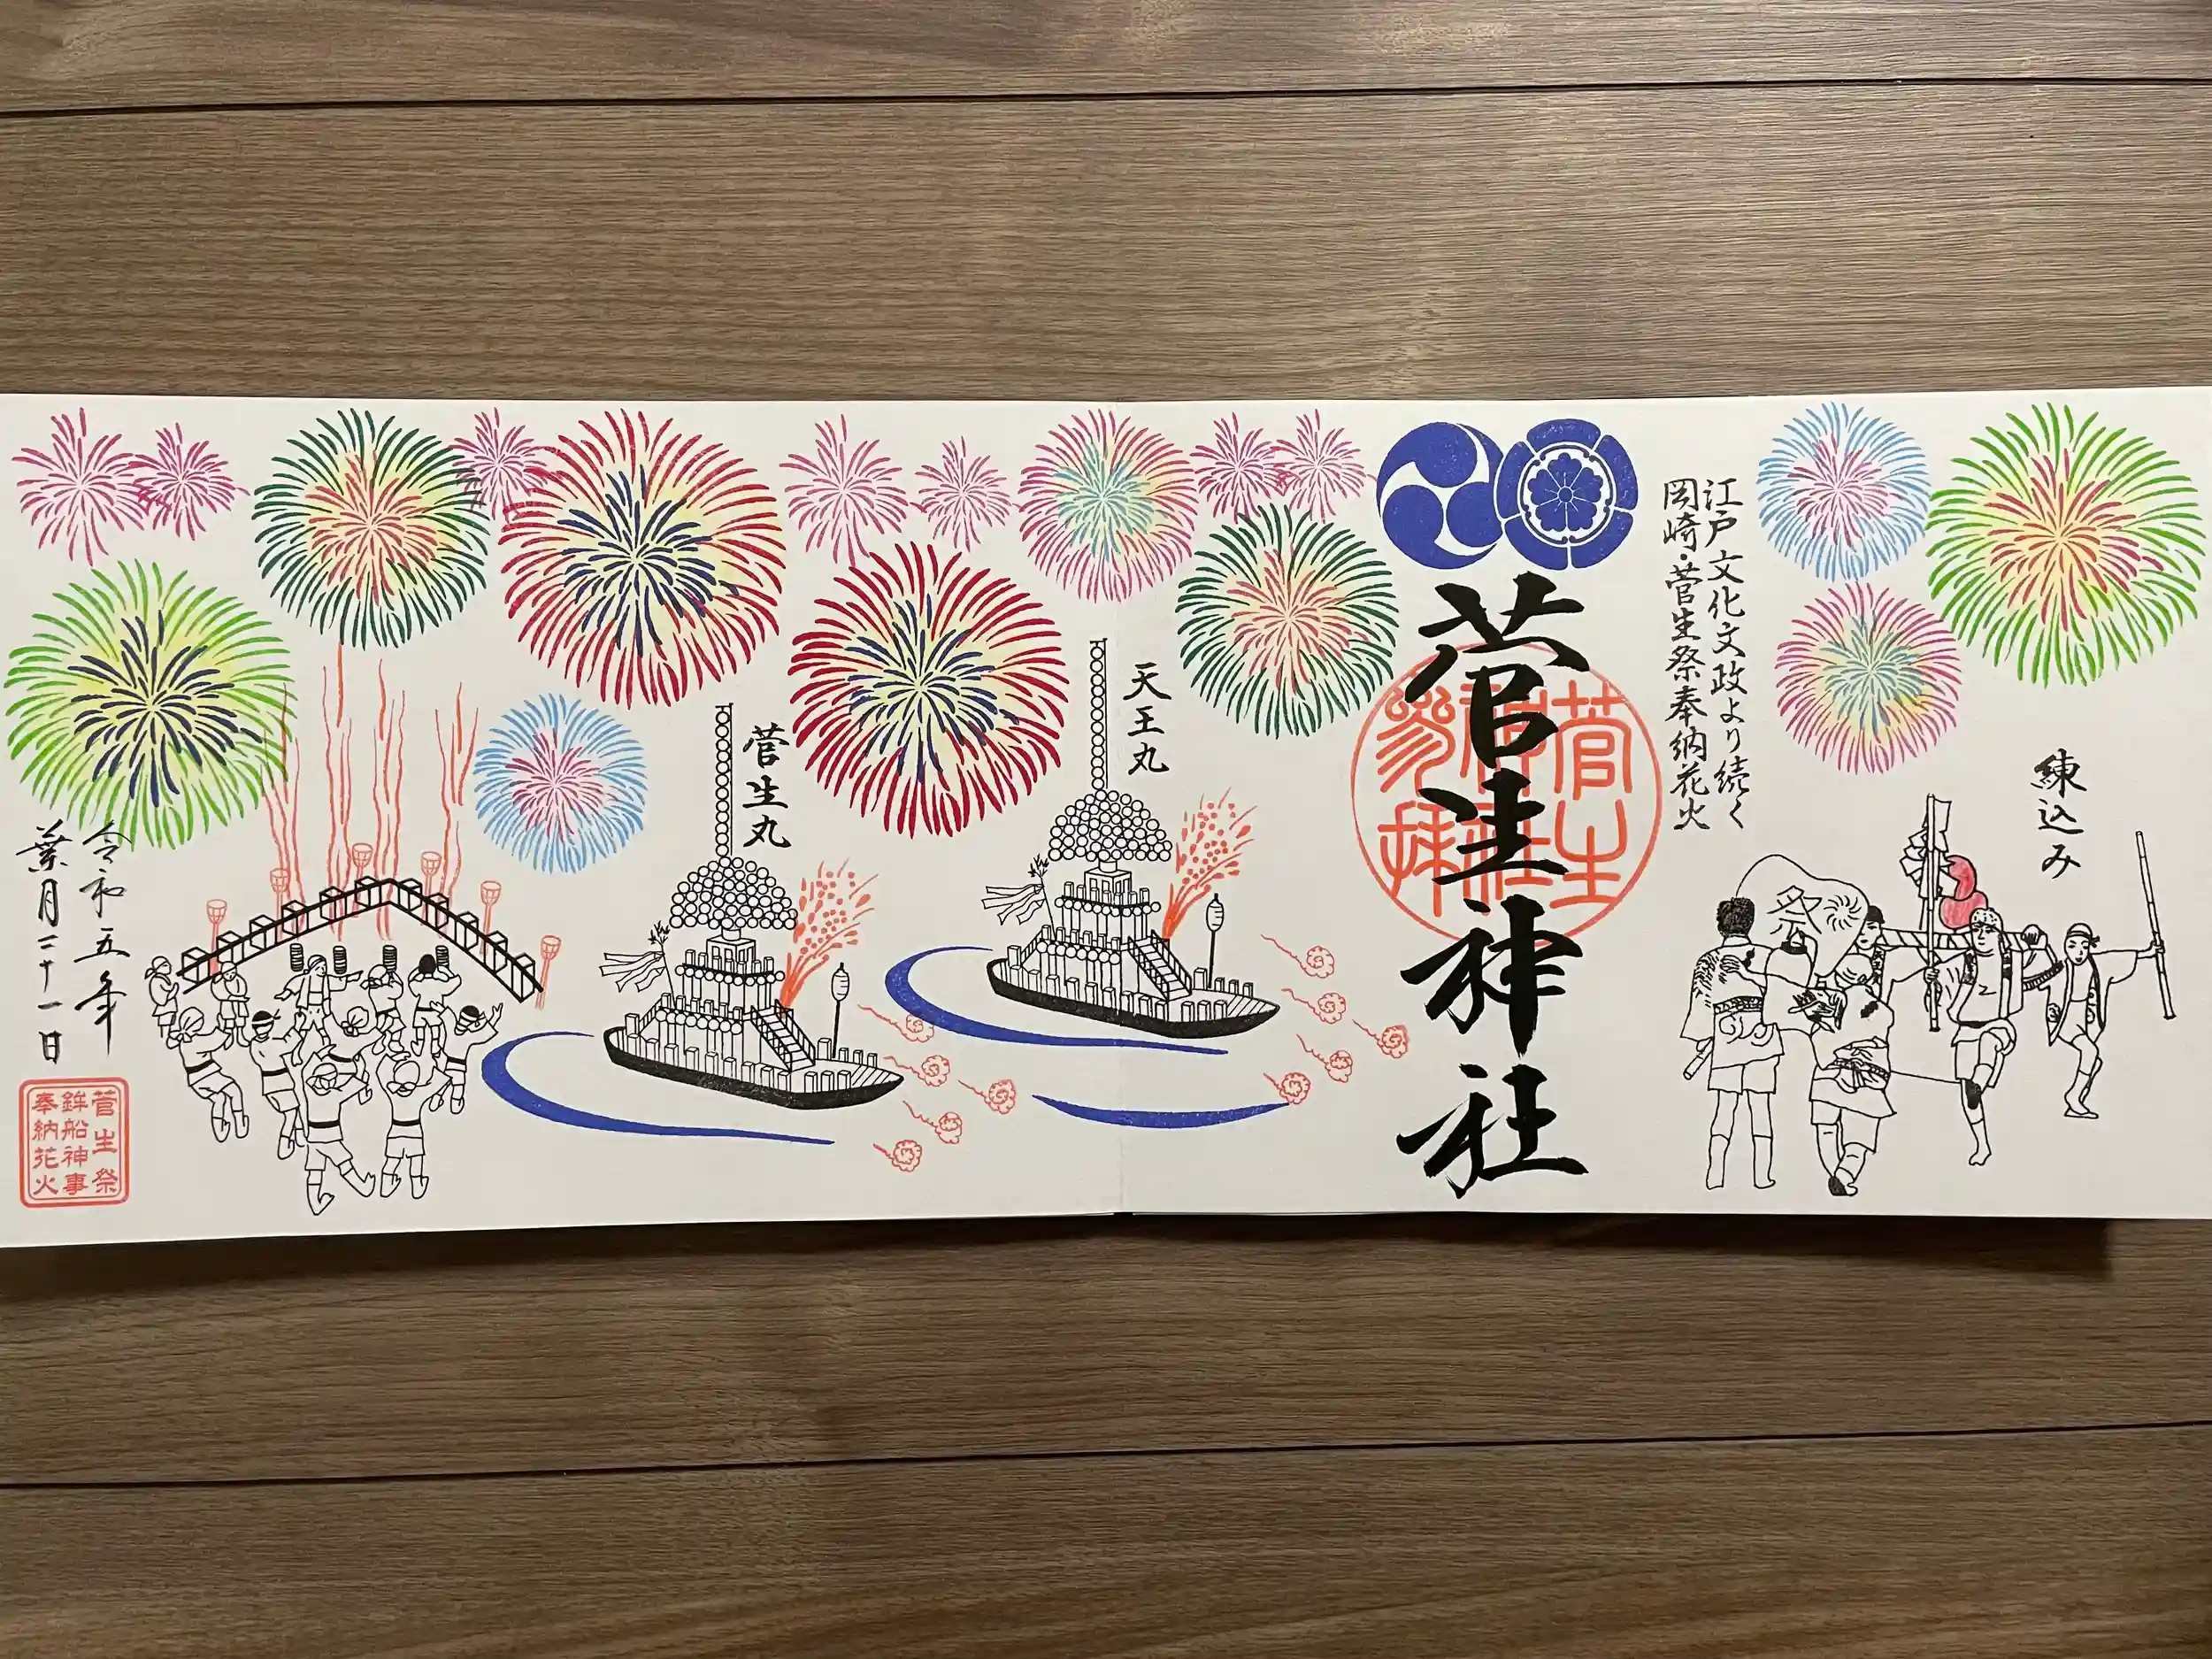 練込み
祭
江戸文化文政より続く
岡崎・菅生祭奉納花火
菅生神社
菅生
神社
参拝
天王丸
菅生丸
令和五年
葉月二十一日
菅生祭
鉾船神事
奉納花火